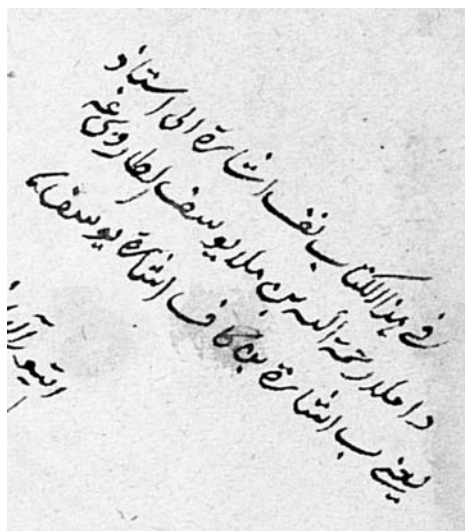 في هذا الكتاب بف اشارة الى استاذ
داملا رحمة الله بن ملا يوسف غه
يعني ب اشارة بن كا ف اشارة يوسف